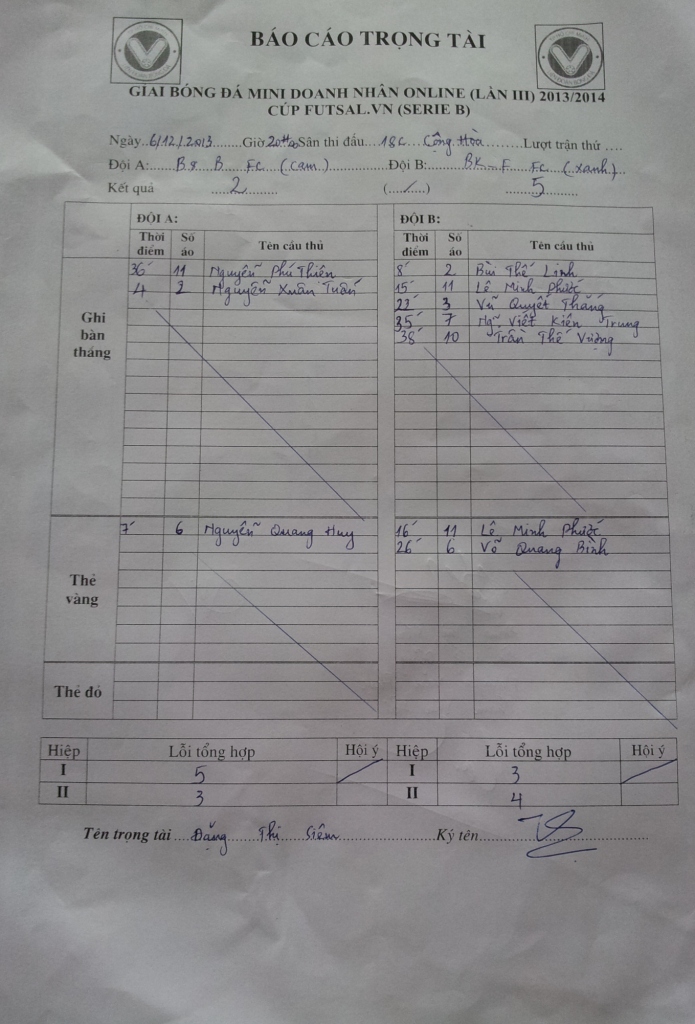 BÁO CÁO TRỌNG TÀI
GIẢI BÓNG ĐÁ MINI DOANH NHÂN ONLINE (LẦN III) 2013/2014
CÚP FUTSAL.VN (SERIE B)
Ngày..6/12/2013........Giờ 20H00 Sân thi đấu...18C Cộng Hòa.........Lượt trận thứ ....
Đội A: B & B FC (cam) Đội B: BK - F FC (xanh)
Kết quả 2 (.../...) 5
ĐỘI A: ĐỘI B:
Thời điểm Số áo Tên cầu thủ Thời điểm Số áo Tên cầu thủ
Ghi bàn thắng
36' 11 Nguyễn Phú Thiên 8' 2 Bùi Thế Linh
4 2 Nguyễn Xuân Tuấn 15' 11 Lê Minh Phước
22' 3 Vũ Quyết Thắng
35' 7 Ng~ Viết Kiên Trung
38' 10 Trần Thế Vượng
Thẻ vàng
7' 6 Nguyễn Quang Huy 16' 11 Lê Minh Phước
26' 6 Võ Quang Bình
Thẻ đỏ
Hiệp Lỗi tổng hợp Hội ý Hiệp Lỗi tổng hợp Hội ý
I 5 I 3
II 3 II 4
Tên trọng tài ....Đặng Thị Kiêm Ký tên